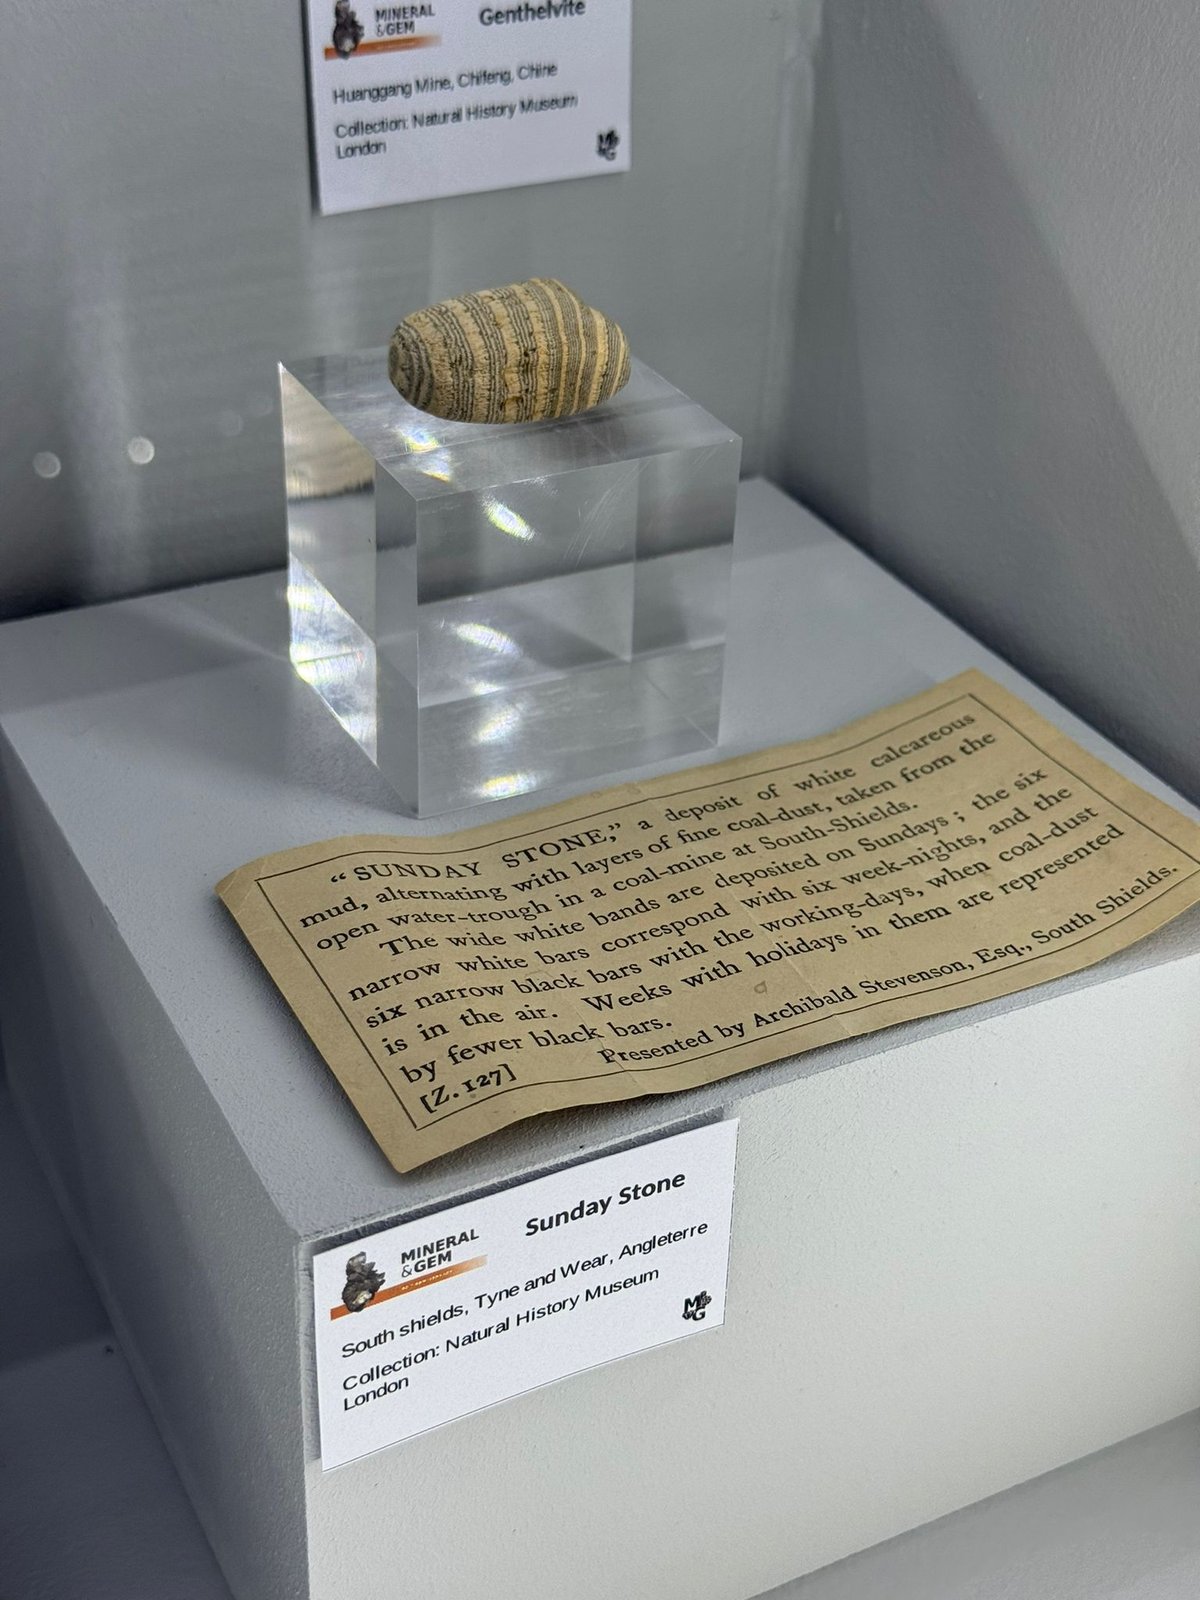 MINERAL
&GEM
Genthelvite
Huanggang Mine, Chifeng, Chine
Collection: Natural History Museum
London
“SUNDAY STONE,” a deposit of white calcareous
mud, alternating with layers of fine coal-dust, taken from the
open water-trough in a coal-mine at South-Shields.
The wide white bands are deposited on Sundays; the six
narrow white bars correspond with six week-nights, and the
six narrow black bars with the working-days, when coal-dust
is in the air. Weeks with holidays in them are represented
by fewer black bars.
[Z. 127] Presented by Archibald Stevenson, Esq., South Shields.
MINERAL
&GEM
Sunday Stone
South shields, Tyne and Wear, Angleterre
Collection: Natural History Museum
London